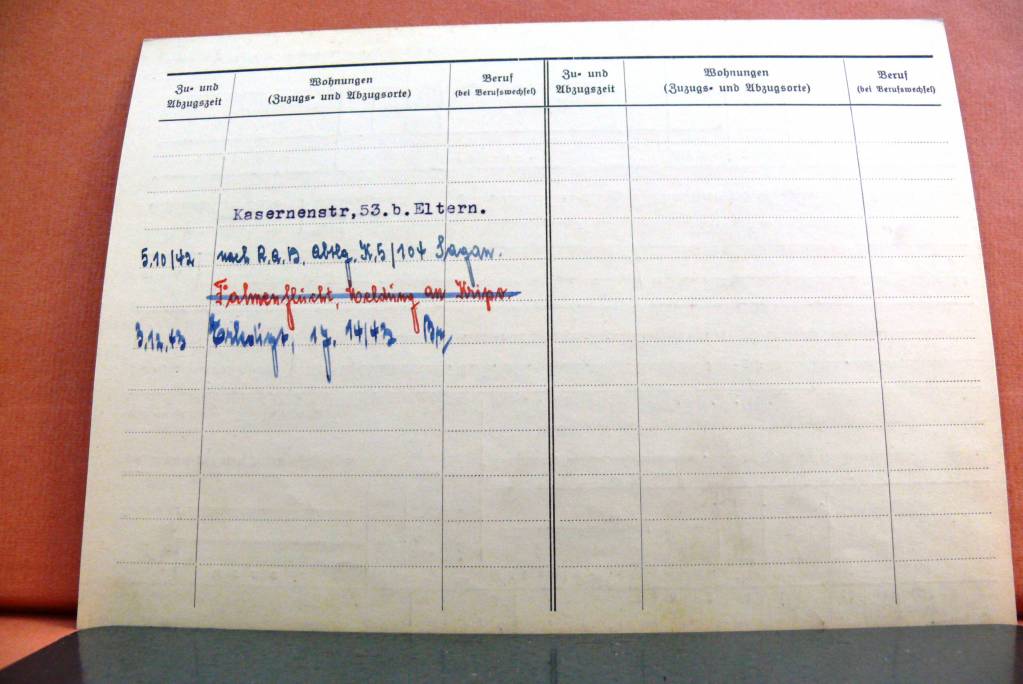 Zu- und Abzugszeit
Wohnungen
(Zuzugs- und Abzugsorte)
Beruf
(bei Berufswechsel)
Zu- und Abzugszeit
Wohnungen
(Zuzugs- und Abzugsorte)
Beruf
(bei Berufswechsel)
Kasernenstr,53.b.Eltern.
5.10/42 nach R.A.D. Abtlg. K.5/104 Sagan.
Fahnenflucht, Meldung an Kripo.
3.12.43 Erledigt, 14/43